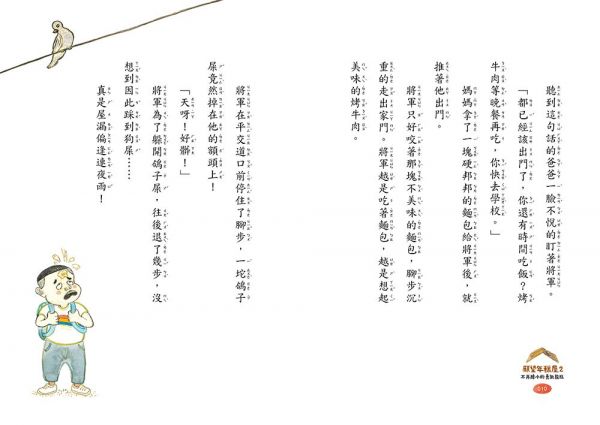 聽到這句話的爸爸一臉不悅的盯著將軍。
「都已經該出門了,你還有時間吃飯?烤
牛肉等晚餐再吃,你快去學校。」
媽媽拿了一塊硬邦邦的麵包給將軍後,就
推著他出門。
將軍只好咬著那塊不美味的麵包,腳步沉
重的走出家門。將軍越是吃著麵包,越是想起
美味的烤牛肉。
將軍在平交道口前停住了腳步,一坨鴿子
屎竟然掉在他的額頭上!
「天呀!好髒!」
將軍為了躲開鴿子屎,往後退了幾步,沒
想到因此踩到狗屎……
真是屋漏偏逢連夜雨!
願望年糕屋2
010